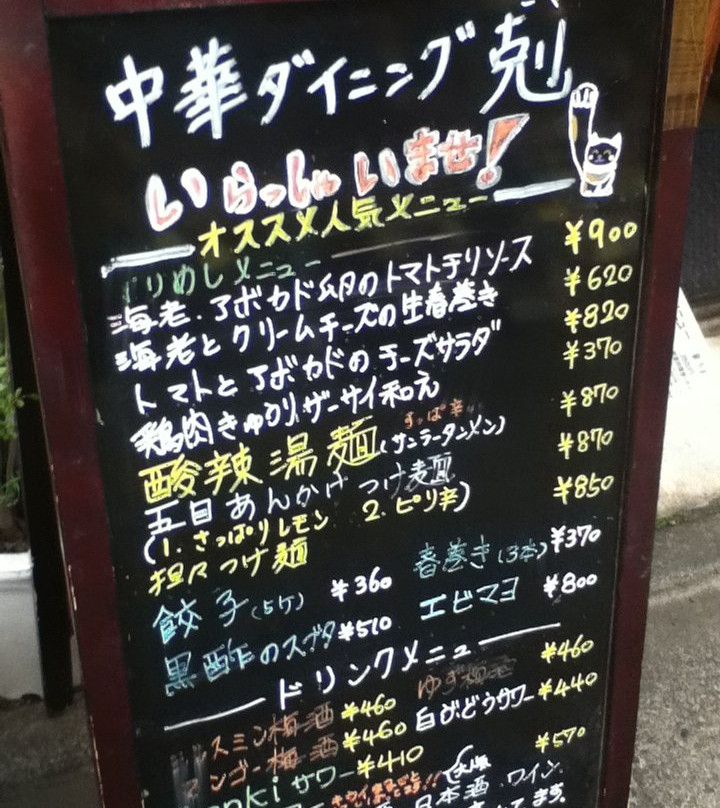 中華ダイニング 剋
いらっしゃいませ!
オススメ人気メニュー
メニュー
海老、アボカド、卵のトマトチリソース ¥900
海老とクリームチーズの生春巻き ¥620
トマトとアボカドのチーズサラダ ¥820
鶏肉きゅうりザーサイ和え ¥370
すっぱ辛
酸辣湯麺(サンラータンメン) ¥870
五目あんかけつけ麺 ¥870
(1. さっぱりレモン 2. ピリ辛)
担々つけ麺 ¥850
餃子(5ケ) ¥360 春巻き(3本) ¥370
黒酢のスブタ ¥510 エビマヨ ¥800
ドリンクメニュー
スミン梅酒 ¥460 ゆず梅酒 ¥460
ンゴー梅酒 ¥460 白ぶどうサワー ¥440
nkiサワー ¥410 ¥570
日本酒、ワイン